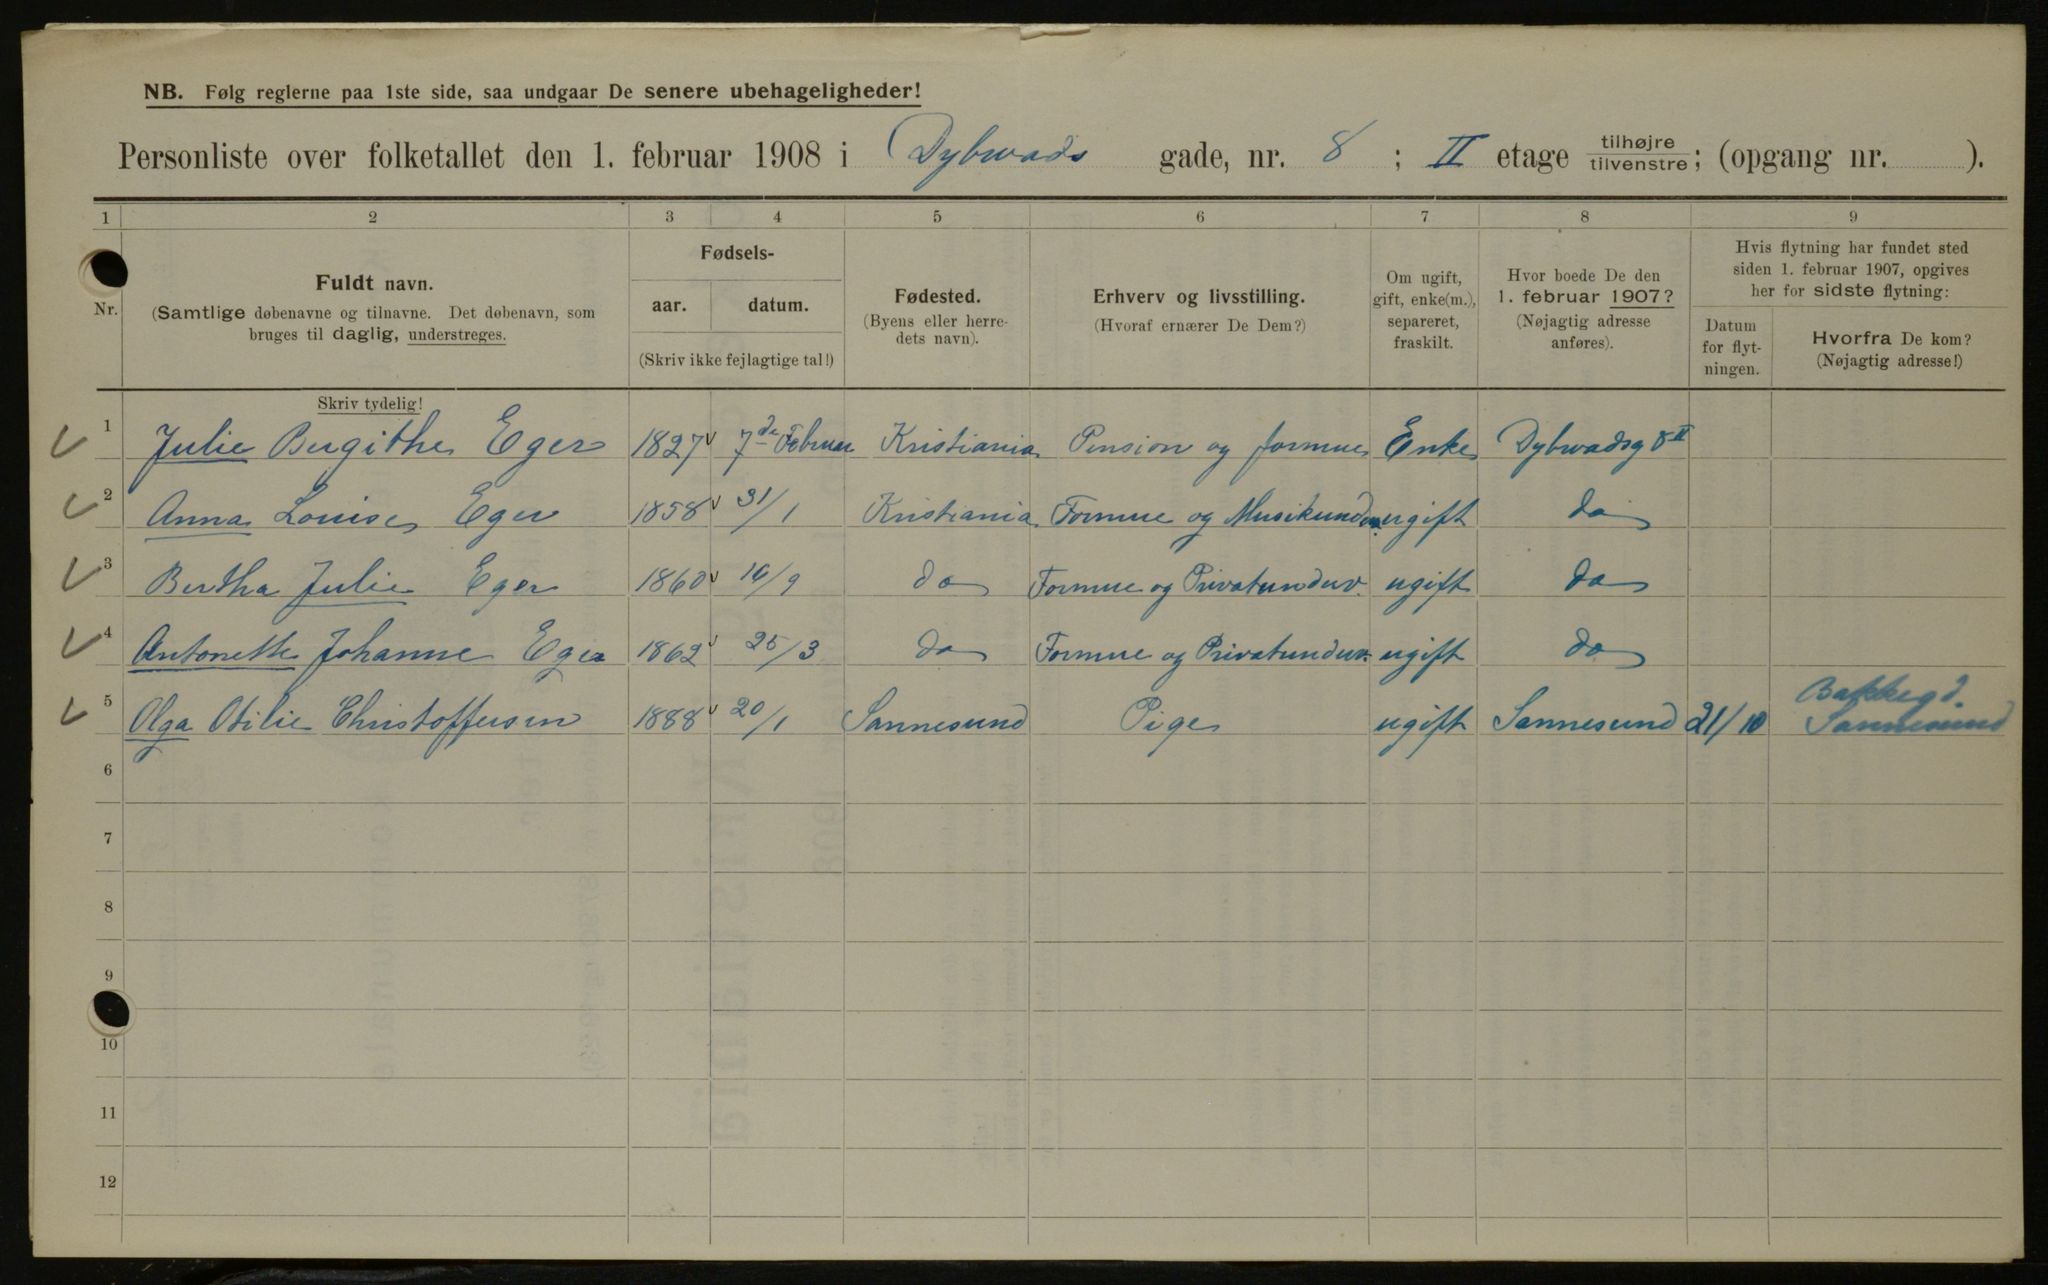 NB. Følg reglerne paa 1ste side, saa undgaar De senere ubehageligheder!
Personliste over folketallet den 1. februar 1908 i Dybwads gade, nr. 8 ; II etage tilhøjre tilvenstre; (opgang nr. ).
1 2 3 4 5 6 7 8 9
Nr.
Fuldt navn.
(Samtlige døbenavne og tilnavne. Det døbenavn, som
bruges til daglig, understreges.
Skriv tydelig!
Fødsels-
aar. datum.
(Skriv ikke fejlagtige tal!)
Fødested.
(Byens eller herre-
dets navn).
Erhverv og livsstilling.
(Hvoraf ernærer De Dem?)
Om ugift,
gift, enke(m.),
separeret,
fraskilt.
Hvor boede De den
1. februar 1907?
(Nøjagtig adresse
anføres).
Hvis flytning har fundet sted
siden 1. februar 1907, opgives
her for sidste flytning:
Datum
for flyt-
ningen.
Hvorfra De kom?
(Nøjagtig adresse!)
1 Julie Birgithe Eger 1827 7de Februar Kristiania Pension og formue Enke Dybwadsg 8 II
2 Anna Louise Eger 1858 31/1 Kristiania Formue og Musikunderv. ugift do
3 Bertha Julie Eger 1860 16/9 do Formue og Privatunderv. ugift do
4 Antonette Johanne Eger 1862 25/3 do Formue og Privatunderv. ugift do
5 Olga Otilie Christoffersen 1888 20/1 Sannesund Pige ugift Sannesund 21/10 Bakkegd. Sannesund
6
7
8
9
10
11
12